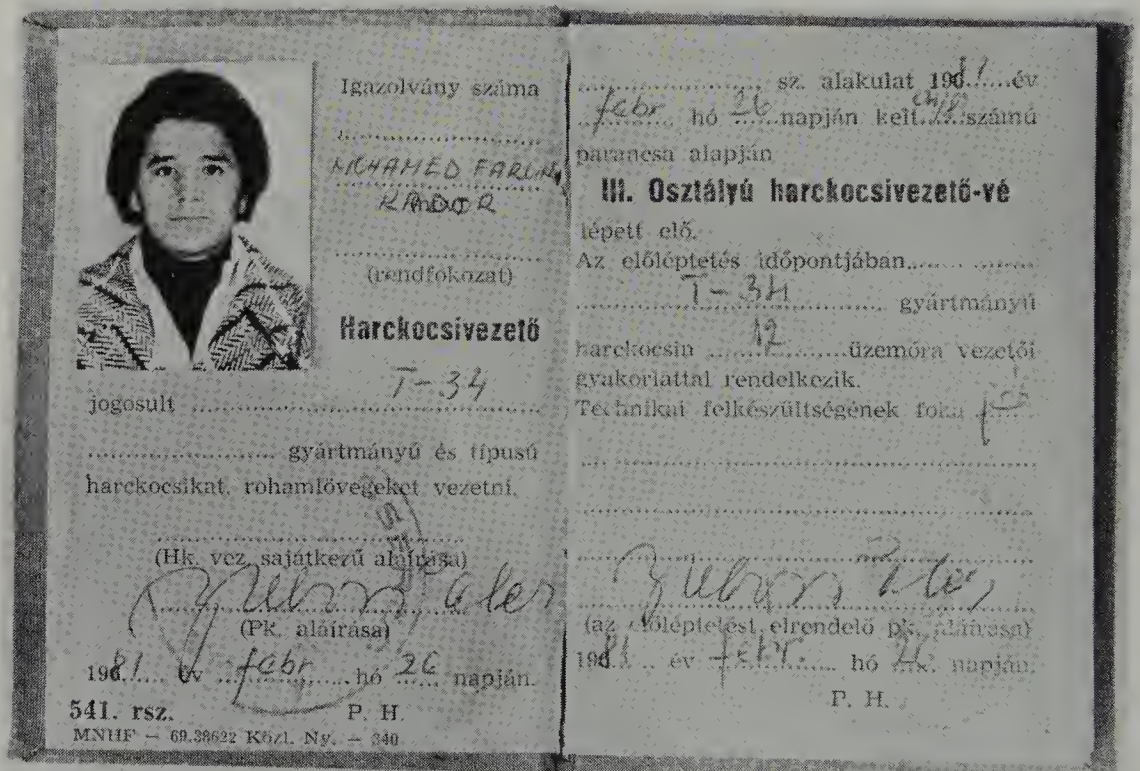 Igazolvány száma
MOHAMED FARUK
KADOR
(rendfokozat)
Harckocsivezető
jogosult T-34
gyártmányú és típusú
harckocsikat, rohamlövegeket vezetni.
(Hk. vez. sajátkezű aláírása)
(Pk. aláírása)
1981 év febr. hó 26 napján.
541. rsz. P. H.
MNHF — 69.38622 Közl. Ny. — 340
sz. alakulat 1981 év
febr hó 26 napján kelt számú
parancsa alapján
III. Osztályú harckocsivezető-vé
lépett elő.
Az előléptetés időpontjában
T-34 gyártmányú
harckocsin 12 üzemóra vezetői
gyakorlattal rendelkezik.
Technikai felkészültségének foka
(az előléptetést elrendelő pk. aláírása)
1981 év febr. hó 26 napján.
P. H.